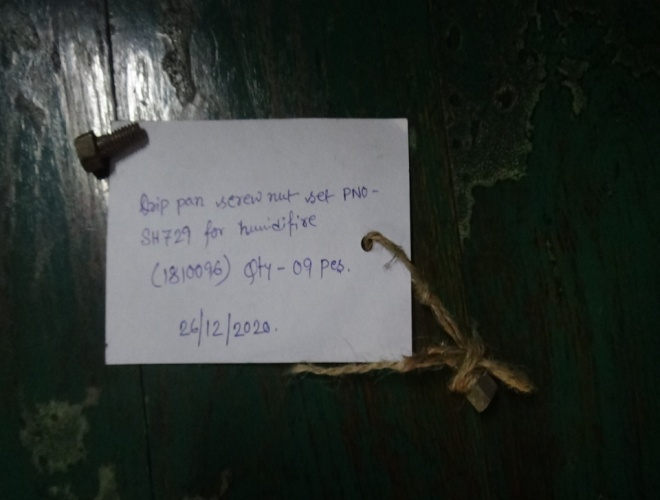 Drip pan screw nut set PNO-
SH729 for humidifire
(1810096) Qty - 09 pcs.
26/12/2020.